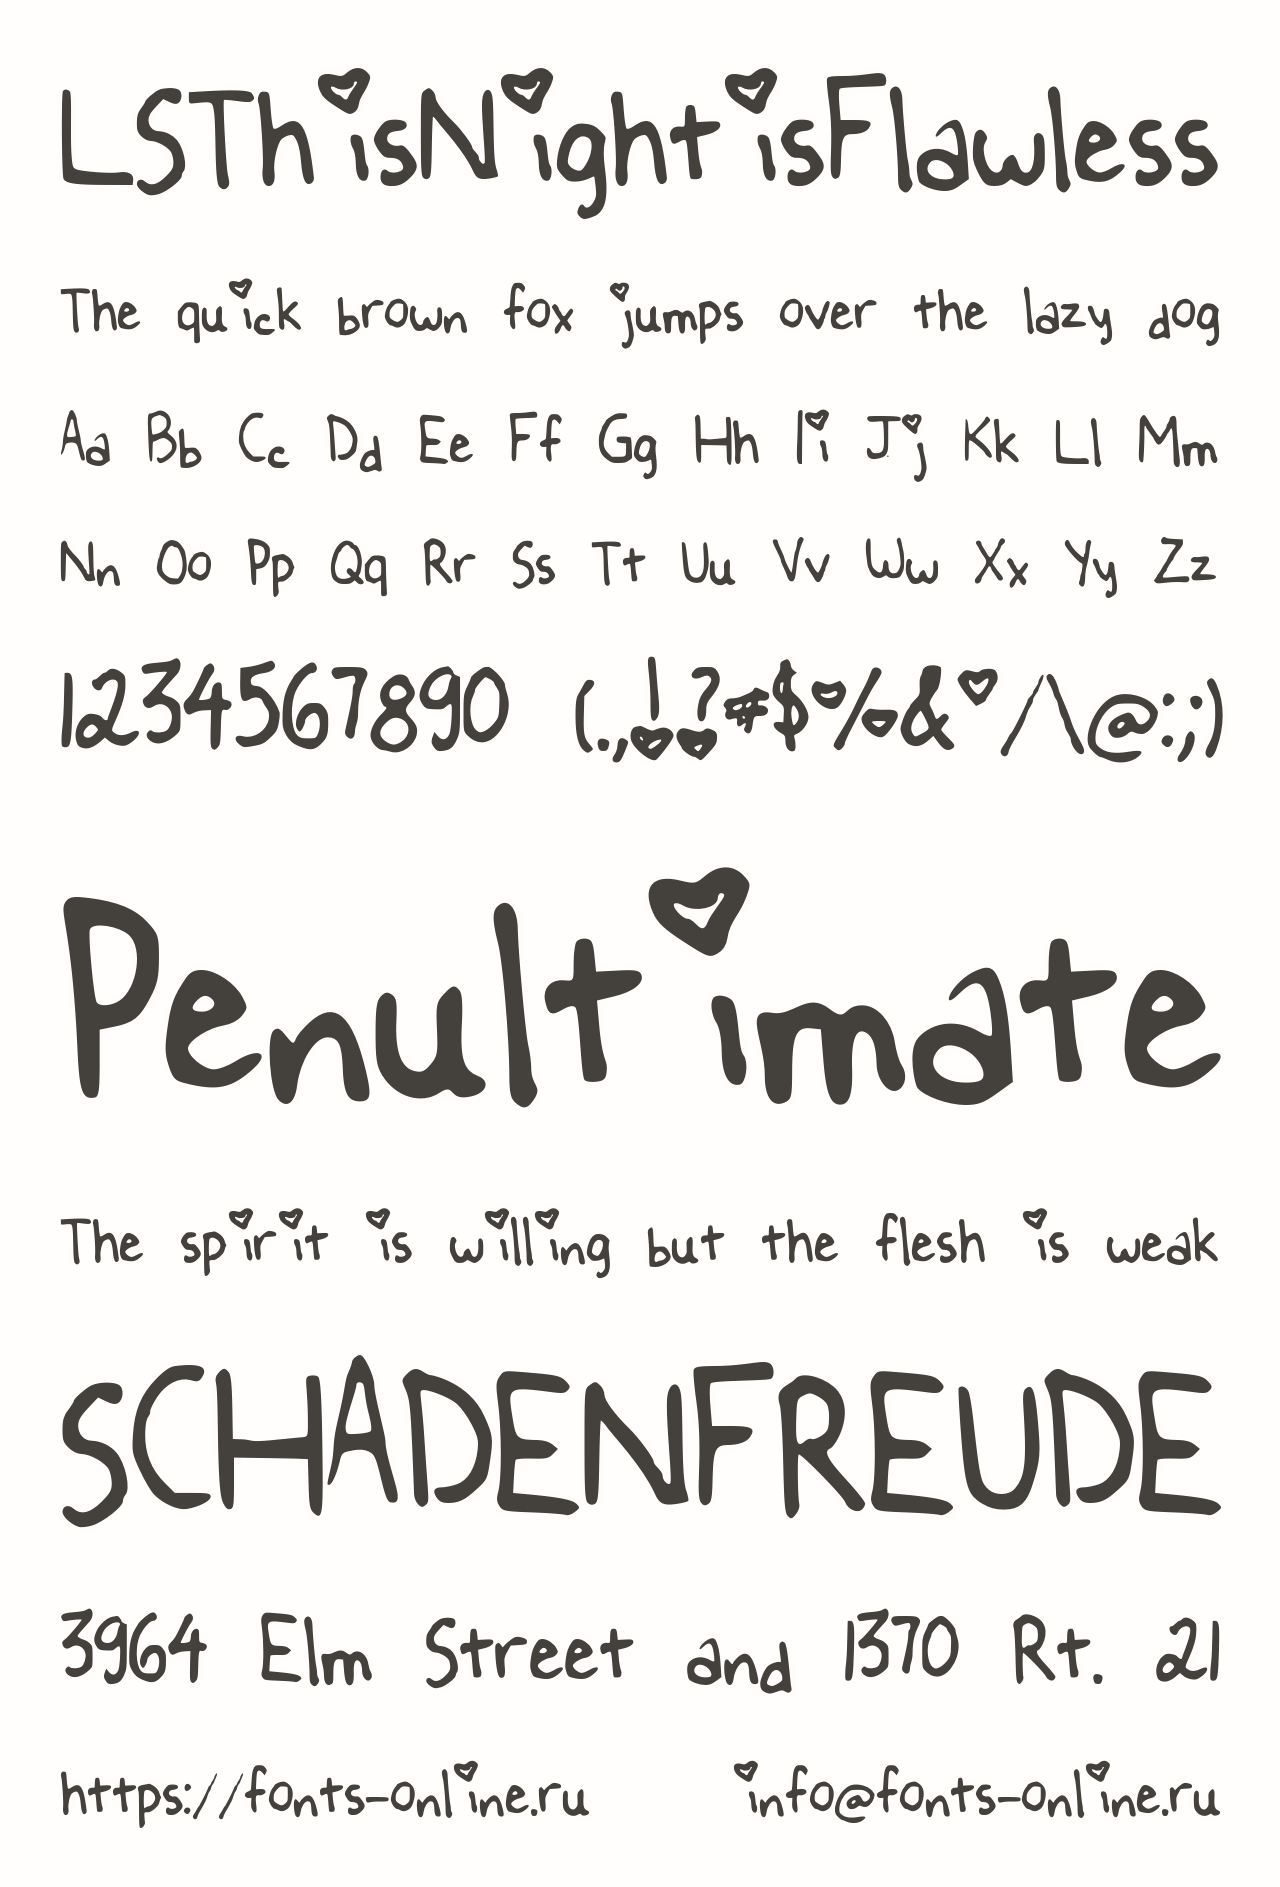 LSThisNightisFlawless
The quick brown fox jumps over the lazy dog
Aa Bb Cc Dd Ee Ff Gg Hh Ii Jj Kk Ll Mm
Nn Oo Pp Qq Rr Ss Tt Uu Vv Ww Xx Yy Zz
1234567890 (.,!?#$%&°/\@:;)
Penultimate
The spirit is willing but the flesh is weak
SCHADENFREUDE
3964 Elm Street and 1370 Rt. 21
https://fonts-online.ru info@fonts-online.ru